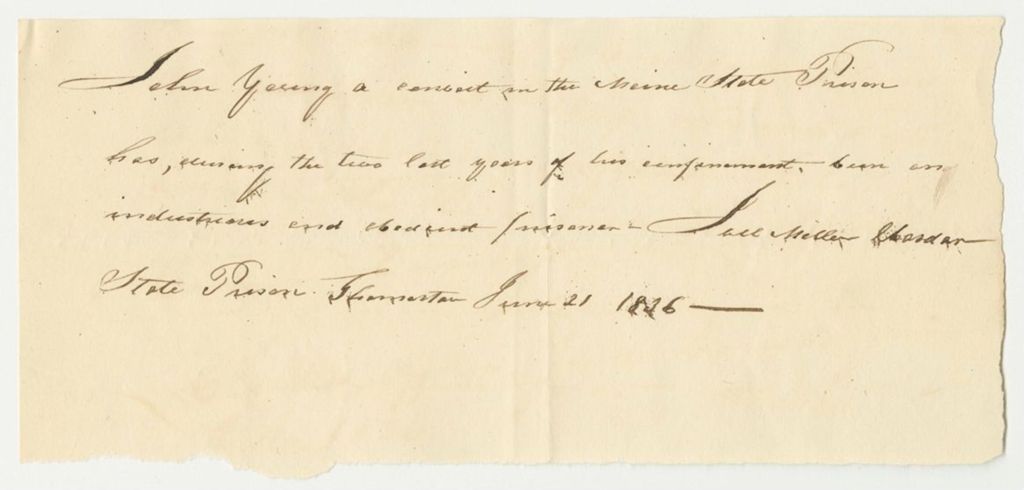 John Young a convict in the Maine State Prison
has, during the two last years of his confinement, been an
industrious and obedient prisoner - Joel Miller Warden
State Prison Thomaston June 21 1826 —